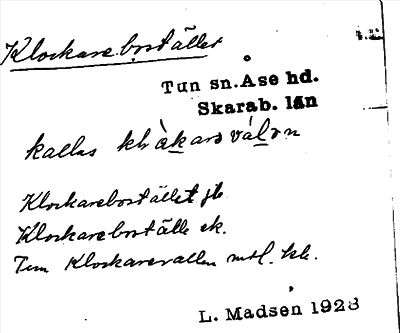 Klockarebostället
Tun sn. Åse hd.
Skarab. län
kallas
Klockarebostället
Klockareboställe ek.
Tun Klockarevallen
L. Madsen 1928